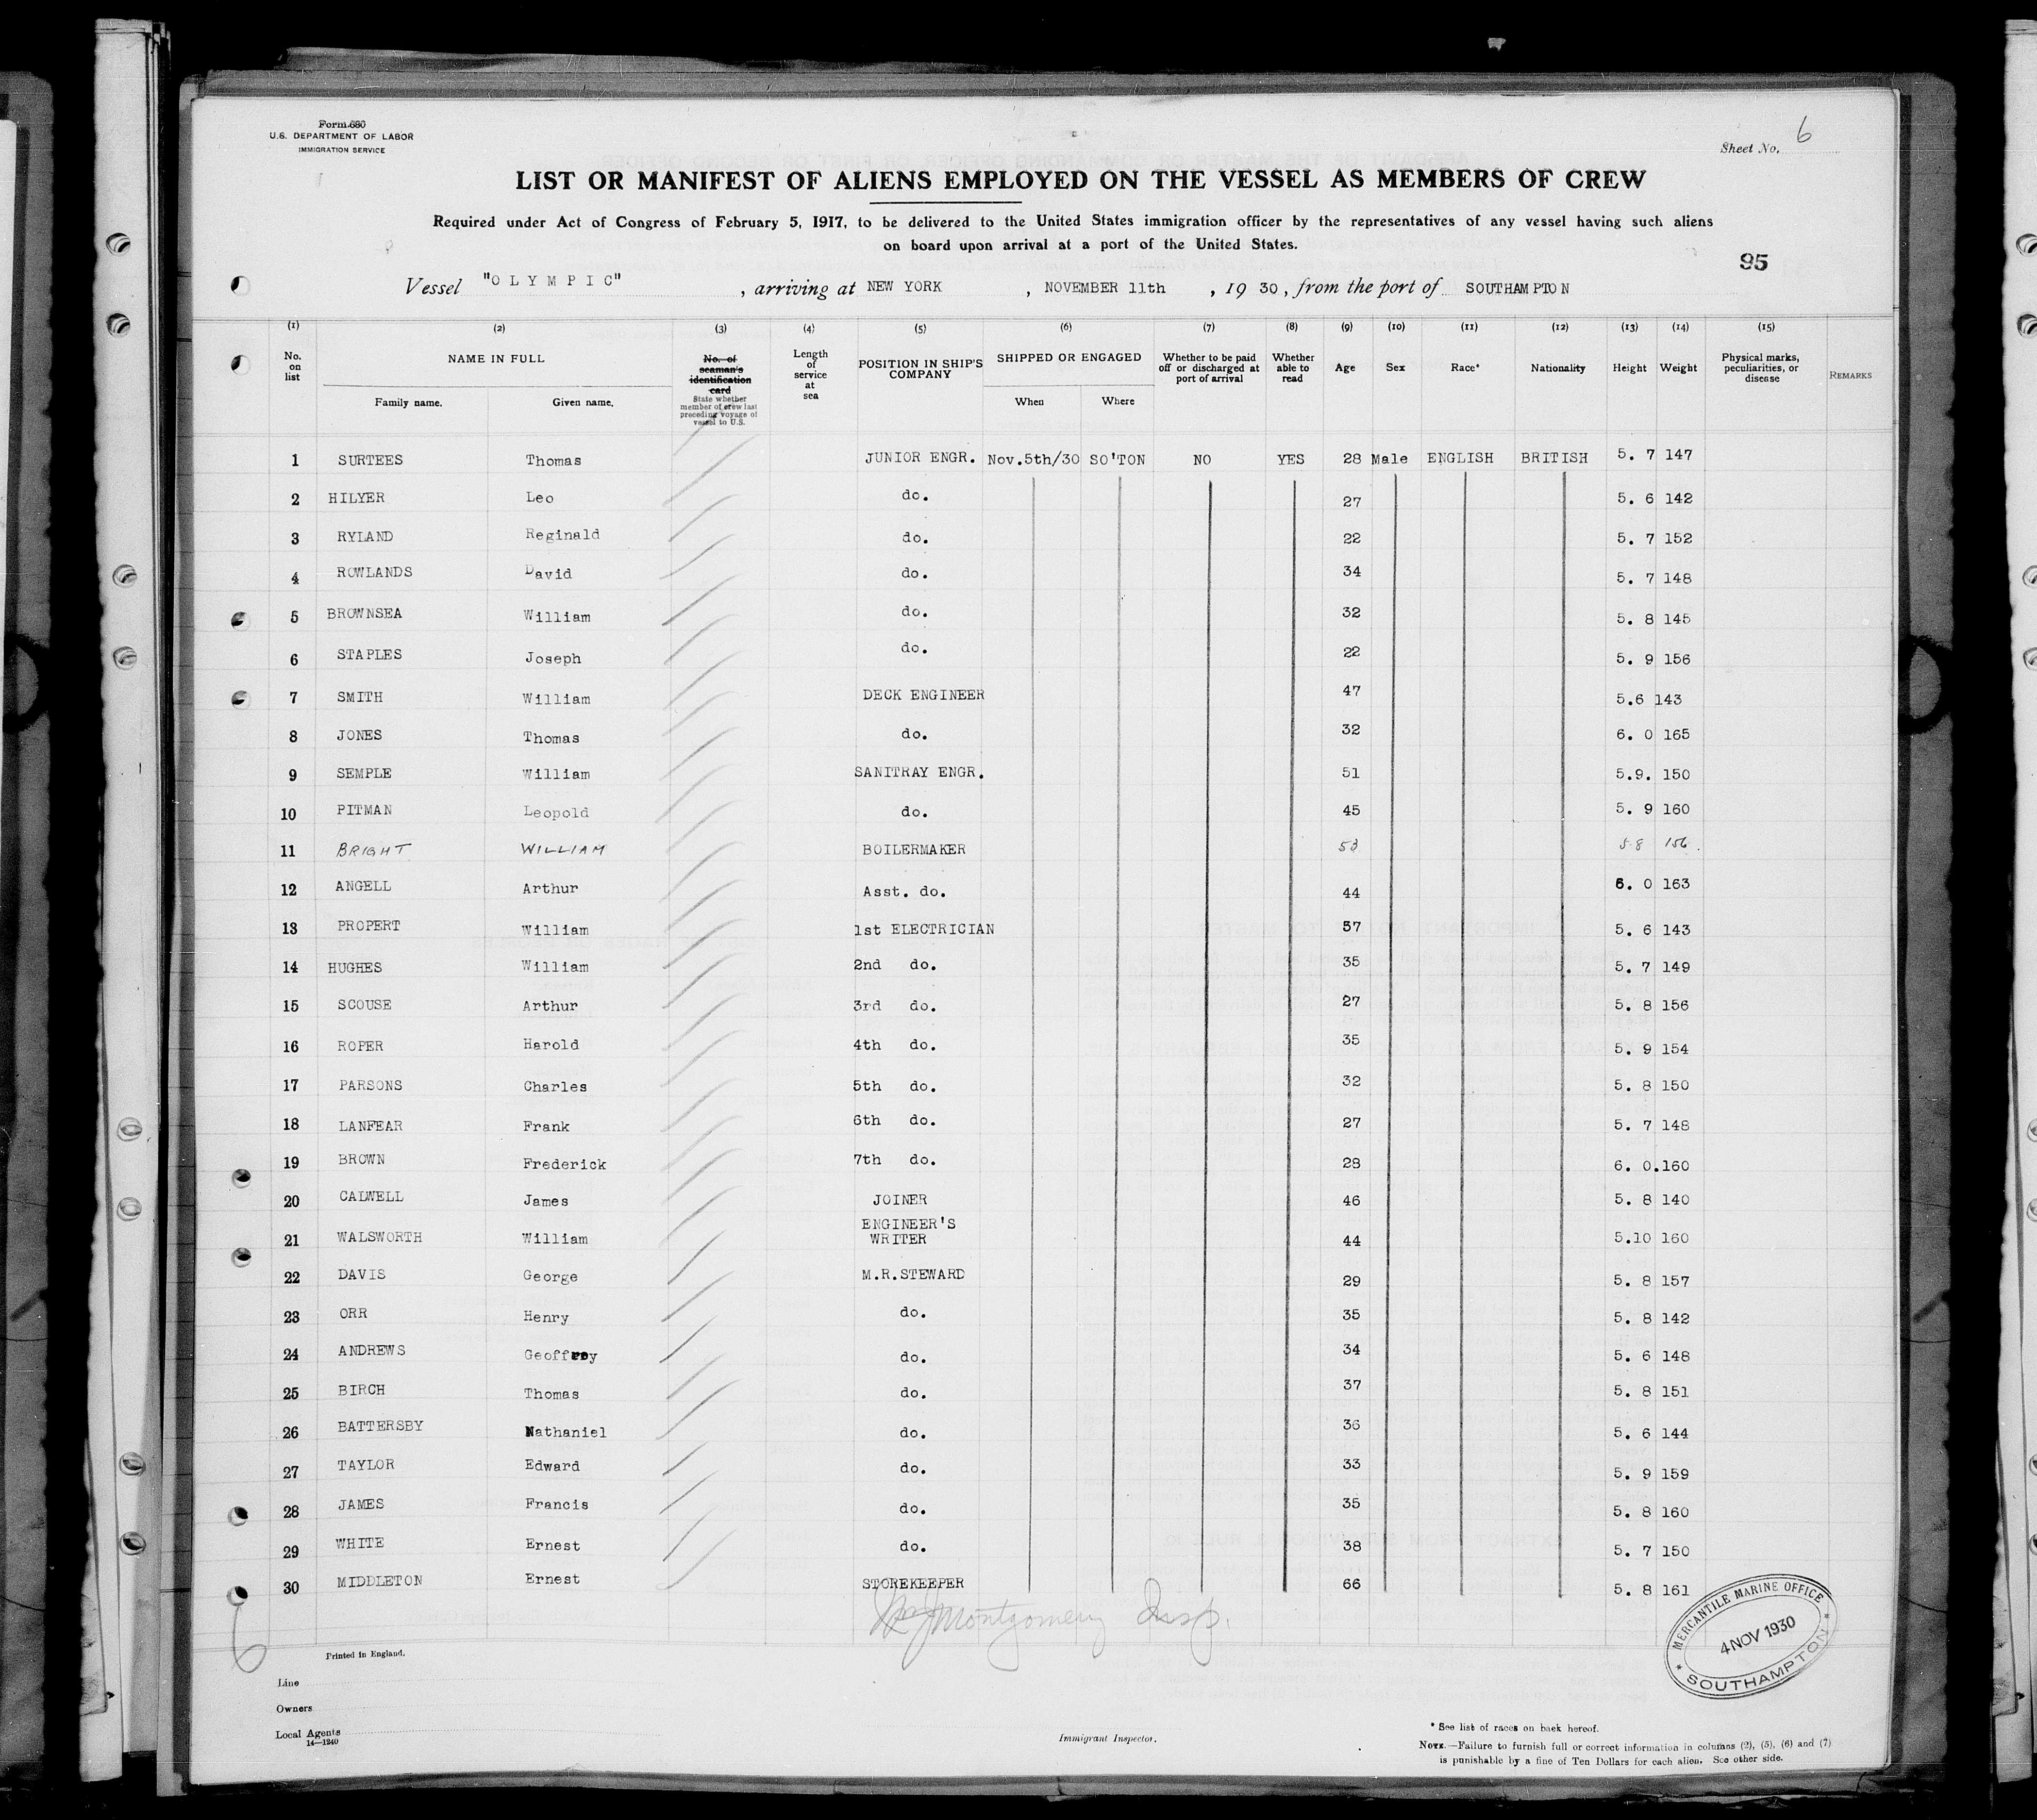 Form 680
U.S. DEPARTMENT OF LABOR
IMMIGRATION SERVICE
Sheet No. 6
LIST OR MANIFEST OF ALIENS EMPLOYED ON THE VESSEL AS MEMBERS OF CREW
Required under Act of Congress of February 5, 1917, to be delivered to the United States immigration officer by the representatives of any vessel having such aliens
on board upon arrival at a port of the United States.
95
Vessel "OLYMPIC", arriving at NEW YORK, NOVEMBER 11th, 1930, from the port of SOUTHAMPTON
(1) (2) (3) (4) (5) (6) (7) (8) (9) (10) (11) (12) (13) (14) (15)
No. on list NAME IN FULL Family name. Given name. No. of seaman's identification card State whether member of crew last preceding voyage of vessel to U.S. Length of service at sea POSITION IN SHIP'S COMPANY SHIPPED OR ENGAGED When Where Whether to be paid off or discharged at port of arrival Whether able to read Age Sex Race* Nationality Height Weight Physical marks, peculiarities, or disease REMARKS
1 SURTEES Thomas JUNIOR ENGR. Nov.5th/30 SO'TON NO YES 28 Male ENGLISH BRITISH 5. 7 147
2 HILYER Leo do. 27 5. 6 142
3 RYLAND Reginald do. 22 5. 7 152
4 ROWLANDS David do. 34 5. 7 148
5 BROWNSEA William do. 32 5. 8 145
6 STAPLES Joseph do. 22 5. 9 156
7 SMITH William DECK ENGINEER 47 5.6 143
8 JONES Thomas do. 32 6. 0 165
9 SEMPLE William SANITRAY ENGR. 51 5.9. 150
10 PITMAN Leopold do. 45 5. 9 160
11 BRIGHT WILLIAM BOILERMAKER 53 5 8 156.
12 ANGELL Arthur Asst. do. 44 6. 0 163
13 PROPERT William 1st ELECTRICIAN 57 5. 6 143
14 HUGHES William 2nd do. 35 5. 7 149
15 SCOUSE Arthur 3rd do. 27 5. 8 156
16 ROPER Harold 4th do. 35 5. 9 154
17 PARSONS Charles 5th do. 32 5. 8 150
18 LANFEAR Frank 6th do. 27 5. 7 148
19 BROWN Frederick 7th do. 28 6. 0.160
20 CALWELL James JOINER 46 5. 8 140
21 WALSWORTH William ENGINEER'S WRITER 44 5.10 160
22 DAVIS George M.R.STEWARD 29 5. 8 157
23 ORR Henry do. 35 5. 8 142
24 ANDREWS Geoffrey do. 34 5. 6 148
25 BIRCH Thomas do. 37 5. 8 151
26 BATTERSBY Nathaniel do. 36 5. 6 144
27 TAYLOR Edward do. 33 5. 9 159
28 JAMES Francis do. 35 5. 8 160
29 WHITE Ernest do. 38 5. 7 150
30 MIDDLETON Ernest STOREKEEPER 66 5. 8 161
Montgomery Insp.
MERCANTILE MARINE OFFICE
4 NOV 1930
SOUTHAMPTON
6
Printed in England.
Line
Owners
Local Agents
14—1240
Immigrant Inspector.
* See list of races on back hereof.
NOTE.—Failure to furnish full or correct information in columns (2), (5), (6) and (7)
is punishable by a fine of Ten Dollars for each alien. See other side.